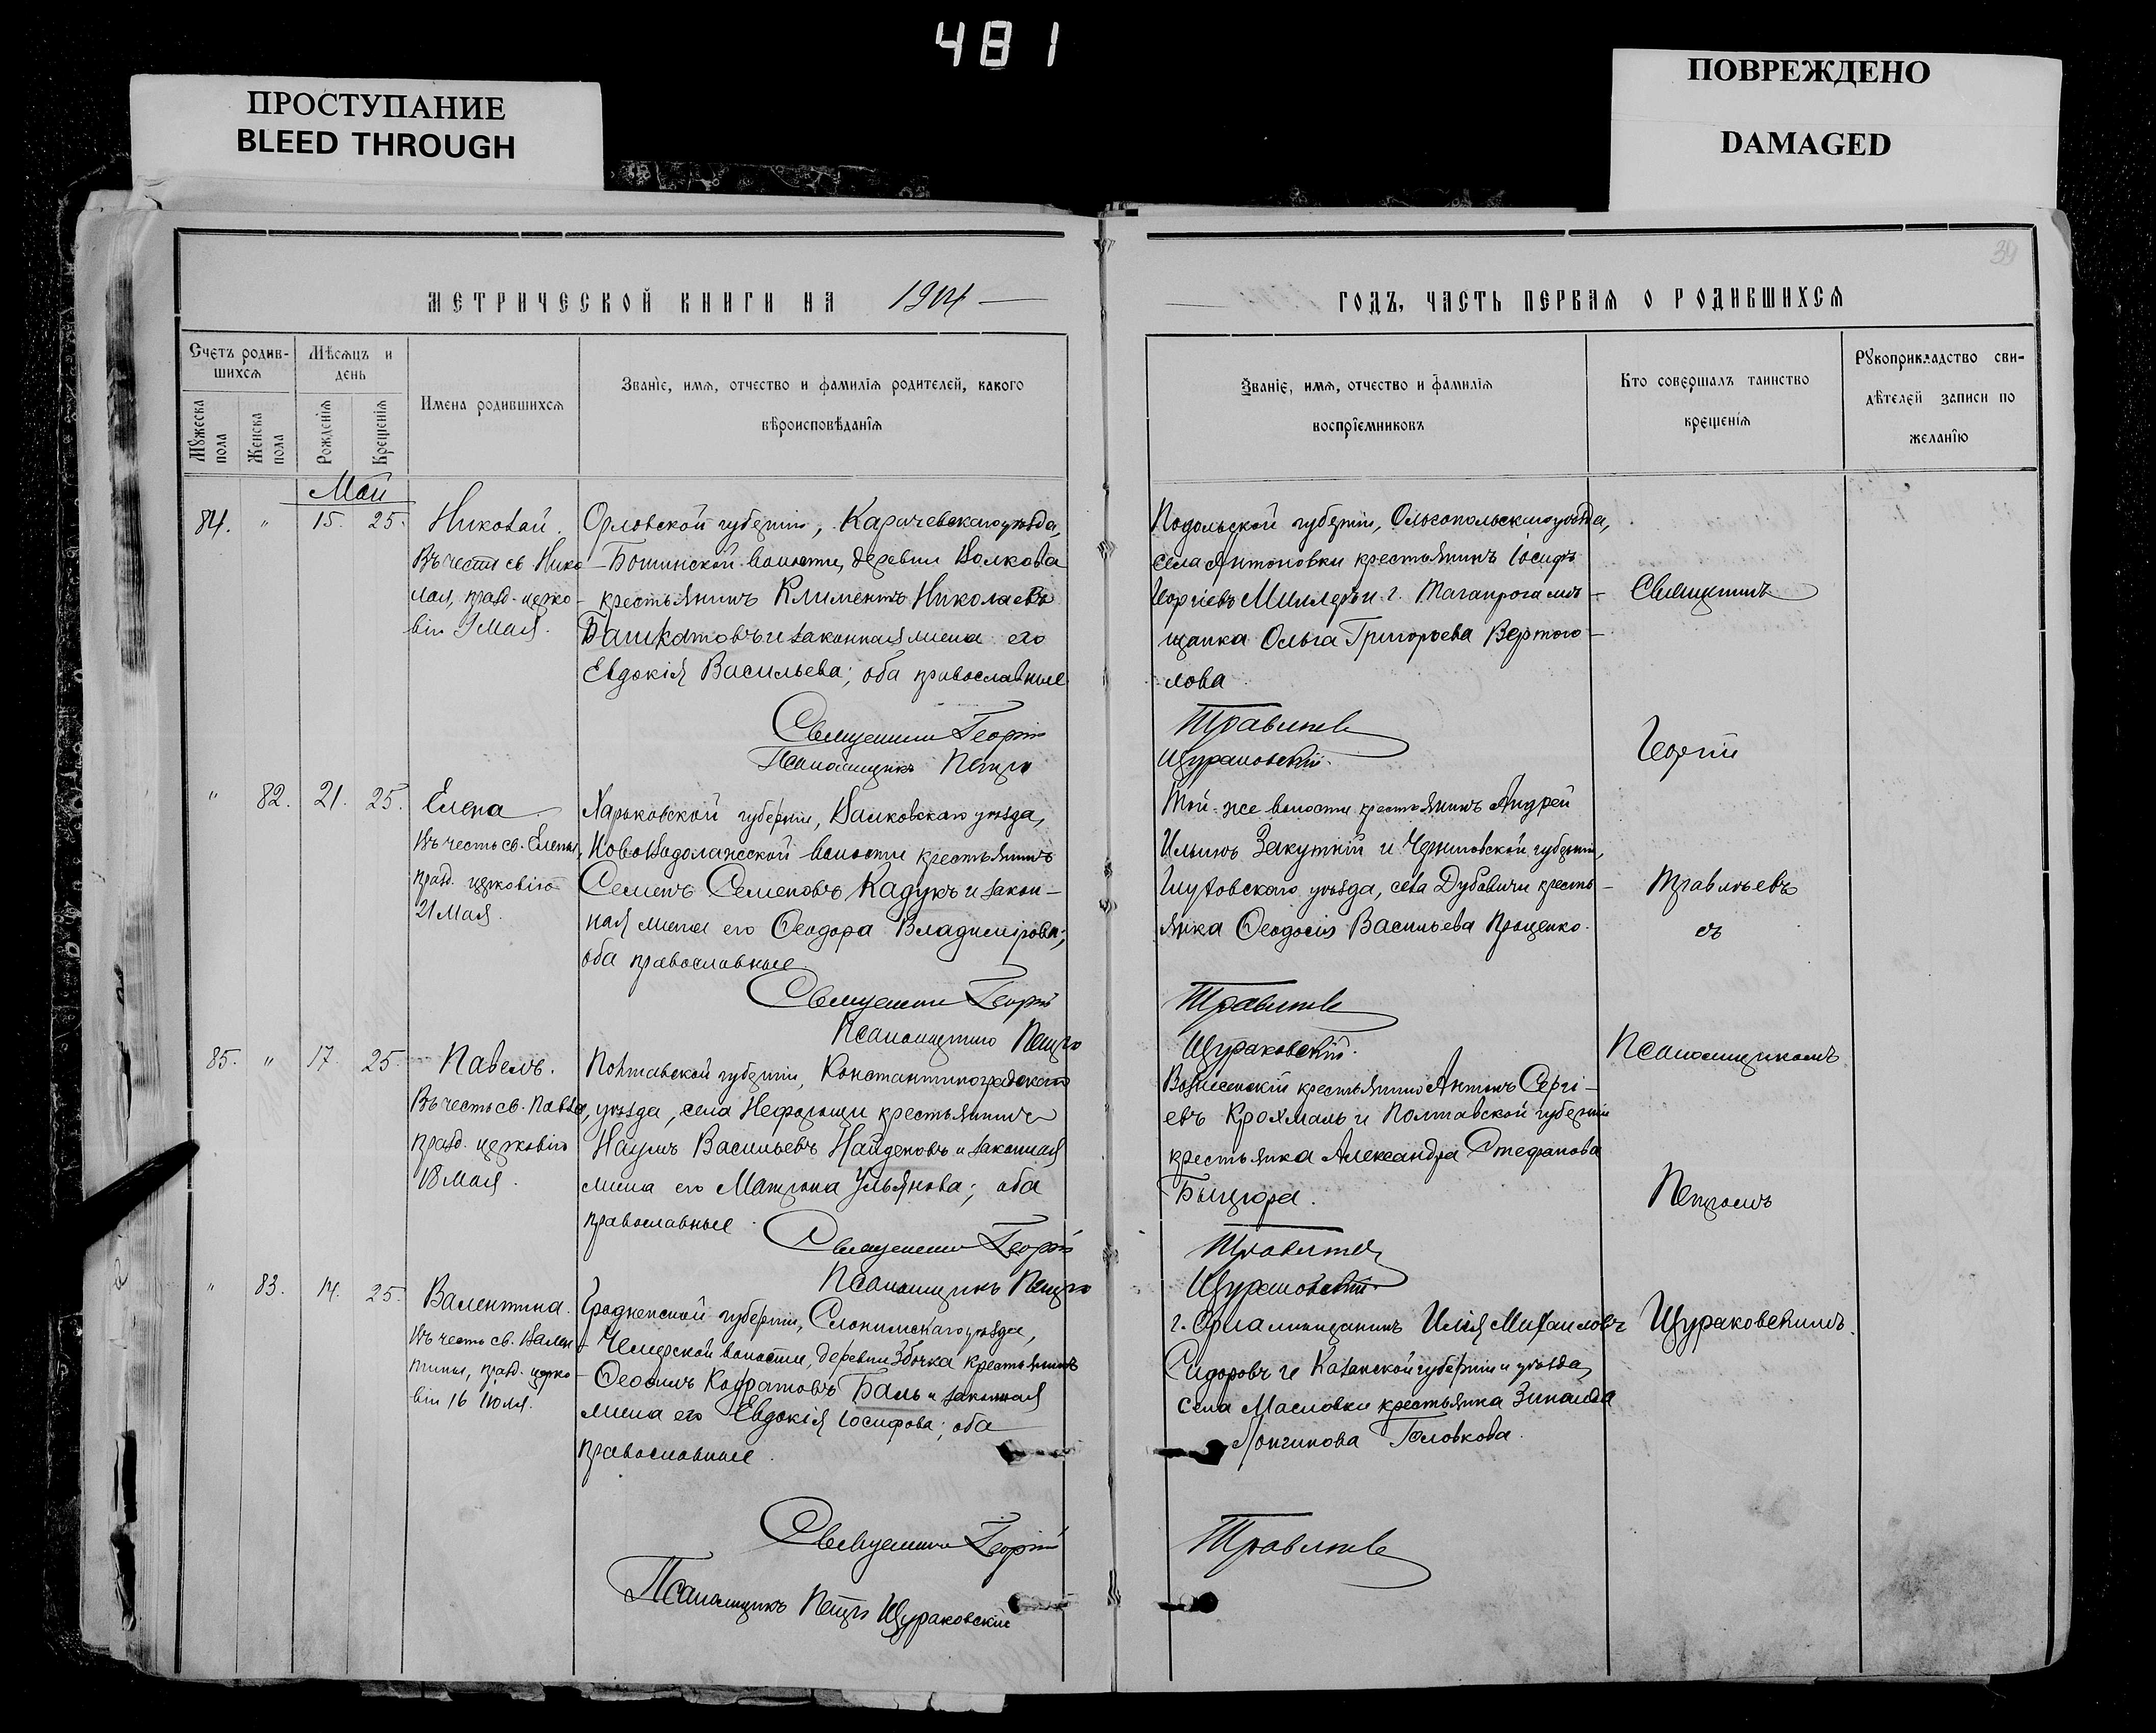 481
ПРОСТУПАНИЕ
BLEED THROUGH
ПОВРЕЖДЕНО
DAMAGED
39
МЕТРИЧЕСКОЙ КНИГИ НА 1904
ГОДЪ, ЧАСТЬ ПЕРВАЯ О РОДИВШИХСЯ
Счетъ родив-
шихся
Мѣсяцъ и
день
Мужеска пола
Женска пола
Рожденія
Крещенія
Имена родившихся
Званіе, имя, отчество и фамилія родителей, какого
вѣроисповѣданія
Званіе, имя, отчество и фамилія
воспріемниковъ
Кто совершалъ таинство
крещенія
Рукоприкладство сви-
дѣтелей записи по
желанію
Май
84. " 15. 25.
Николай.
Въ честь св. Нико
лая, празд. церко-
вію 9 Мая.
Орловской губерніи, Карачевскаго уѣзда,
волости, деревни Волкова
крестьянинъ Климентъ Николаевъ
Башкатовъ и законная жена его
Евдокія Васильева; оба православные
Священникъ Георгій
Псаломщикъ Петръ
Подольской губерніи, Ольгопольскаго уѣзда,
села Антоновки крестьянинъ Іосифъ
Георгіевъ и г. Таганрога мѣ-
щанка Ольга Григорьева Вертого-
лова
Травинъ
Щураковскій.
" 82. 21. 25.
Елена
Въ честь св. Елены,
празд. церковію
21 Мая.
Харьковской губерніи, Валковскаго уѣзда,
Ново Водолажской волости крестьянинъ
Семенъ Семеновъ Кадукъ и закон-
ная жена его Ѳеодора Владимірова;
оба православные
Священникъ Георгій
Псаломщикъ Петръ
Той-же волости крестьянинъ Андрей
Ильинъ Закуткій и Черниговской губерніи,
Глуховскаго уѣзда, села Дубовичи кресть-
янка Ѳеодосія Васильева Проценко.
Щураковскій.
85. " 17. 25.
Павелъ.
Въ честь св. Павла,
празд. церковію
18 Мая.
Полтавской губерніи, Константиноградскаго
уѣзда, села Нефорощи крестьянинъ
Наумъ Васильевъ Найденовъ и законная
жена его Матрона Ульянова; оба
православные.
Священникъ Георгій
Псаломщикъ Петръ
крестьянинъ Антонъ Сергі-
евъ Крохмаль и Полтавской губерніи
крестьянка Александра Стефанова
Щураковскій.
" 83. 14. 25.
Валентина.
Въ честь св. Вален
тины, празд. церко
вію 16 Іюля.
Гродненской губерніи, Слонимскаго уѣзда,
Чемерской волости, деревни Збочка крестьянинъ
Кодратовъ Баль и законная
жена его Евдокія Іосифова; оба
православные.
Священникъ Георгій
Псаломщикъ Петръ Щураковскій
г. Орла мѣщанинъ Илія Михаиловъ
Сидоровъ и Казанской губерніи и уѣзда,
села Масловки крестьянка Зинаида
Лонгинова Головкова.
Священникъ
Георгій
съ
Псаломщикомъ
Петромъ
Щураковскимъ.